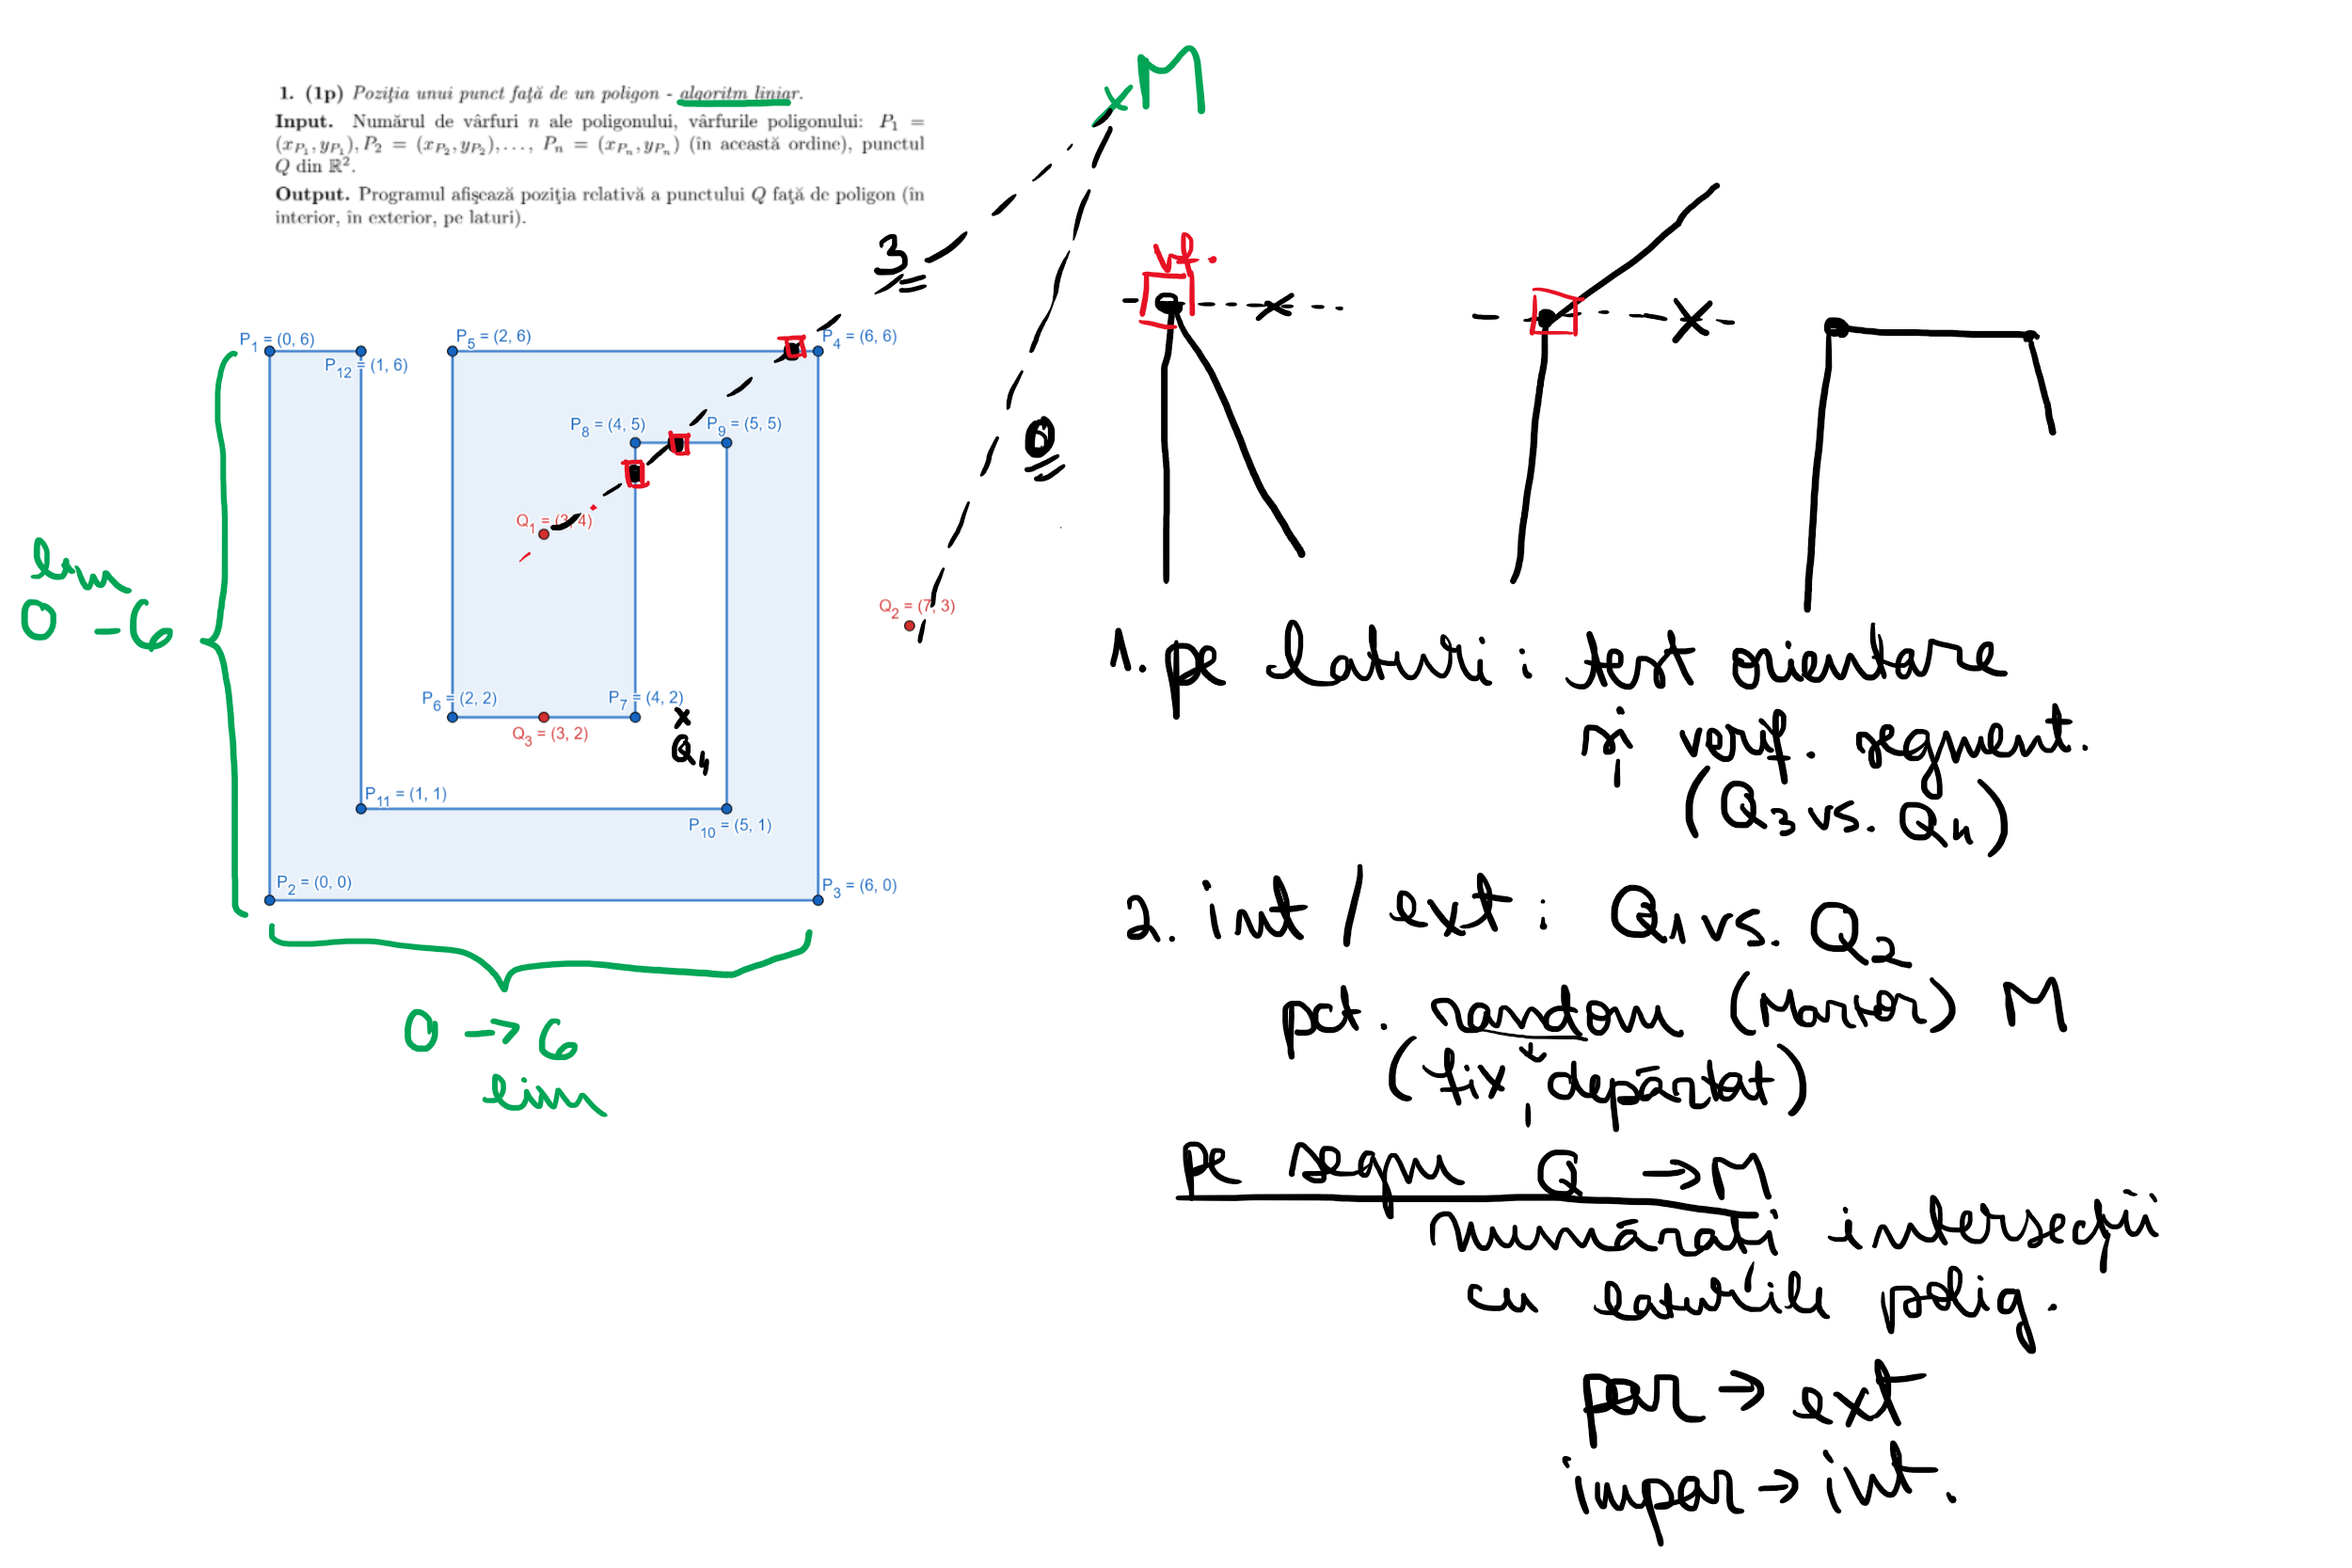 1. (1p) Poziţia unui punct faţă de un poligon - algoritm liniar.
Input. Numărul de vârfuri n ale poligonului, vârfurile poligonului: P₁ =
(x_{P₁}, y_{P₁}), P₂ = (x_{P₂}, y_{P₂}), . . . , Pₙ = (x_{Pₙ}, y_{Pₙ}) (în această ordine), punctul
Q din ℝ².
Output. Programul afişează poziţia relativă a punctului Q faţă de poligon (în
interior, în exterior, pe laturi).
M
3
vf.
P₁ = (0, 6)
P₅ = (2, 6)
P₄ = (6, 6)
P₁₂ = (1, 6)
P₈ = (4, 5)
P₉ = (5, 5)
0
Q₁ = (3, 4)
lim
0 - 6
Q₂ = (7, 3)
P₆ = (2, 2)
P₇ = (4, 2)
Q₃ = (3, 2)
Q₄
P₁₁ = (1, 1)
P₁₀ = (5, 1)
P₂ = (0, 0)
P₃ = (6, 0)
0 → 6
lim
1. pe laturi : test orientare
și verif. segment.
(Q₃ vs. Q₄)
2. int / ext : Q₁ vs. Q₂
pct. random (Martor) M
(fix, depărtat)
pe segm Q → M
numărați intersecții
cu laturile polig.
par → ext
impar → int.